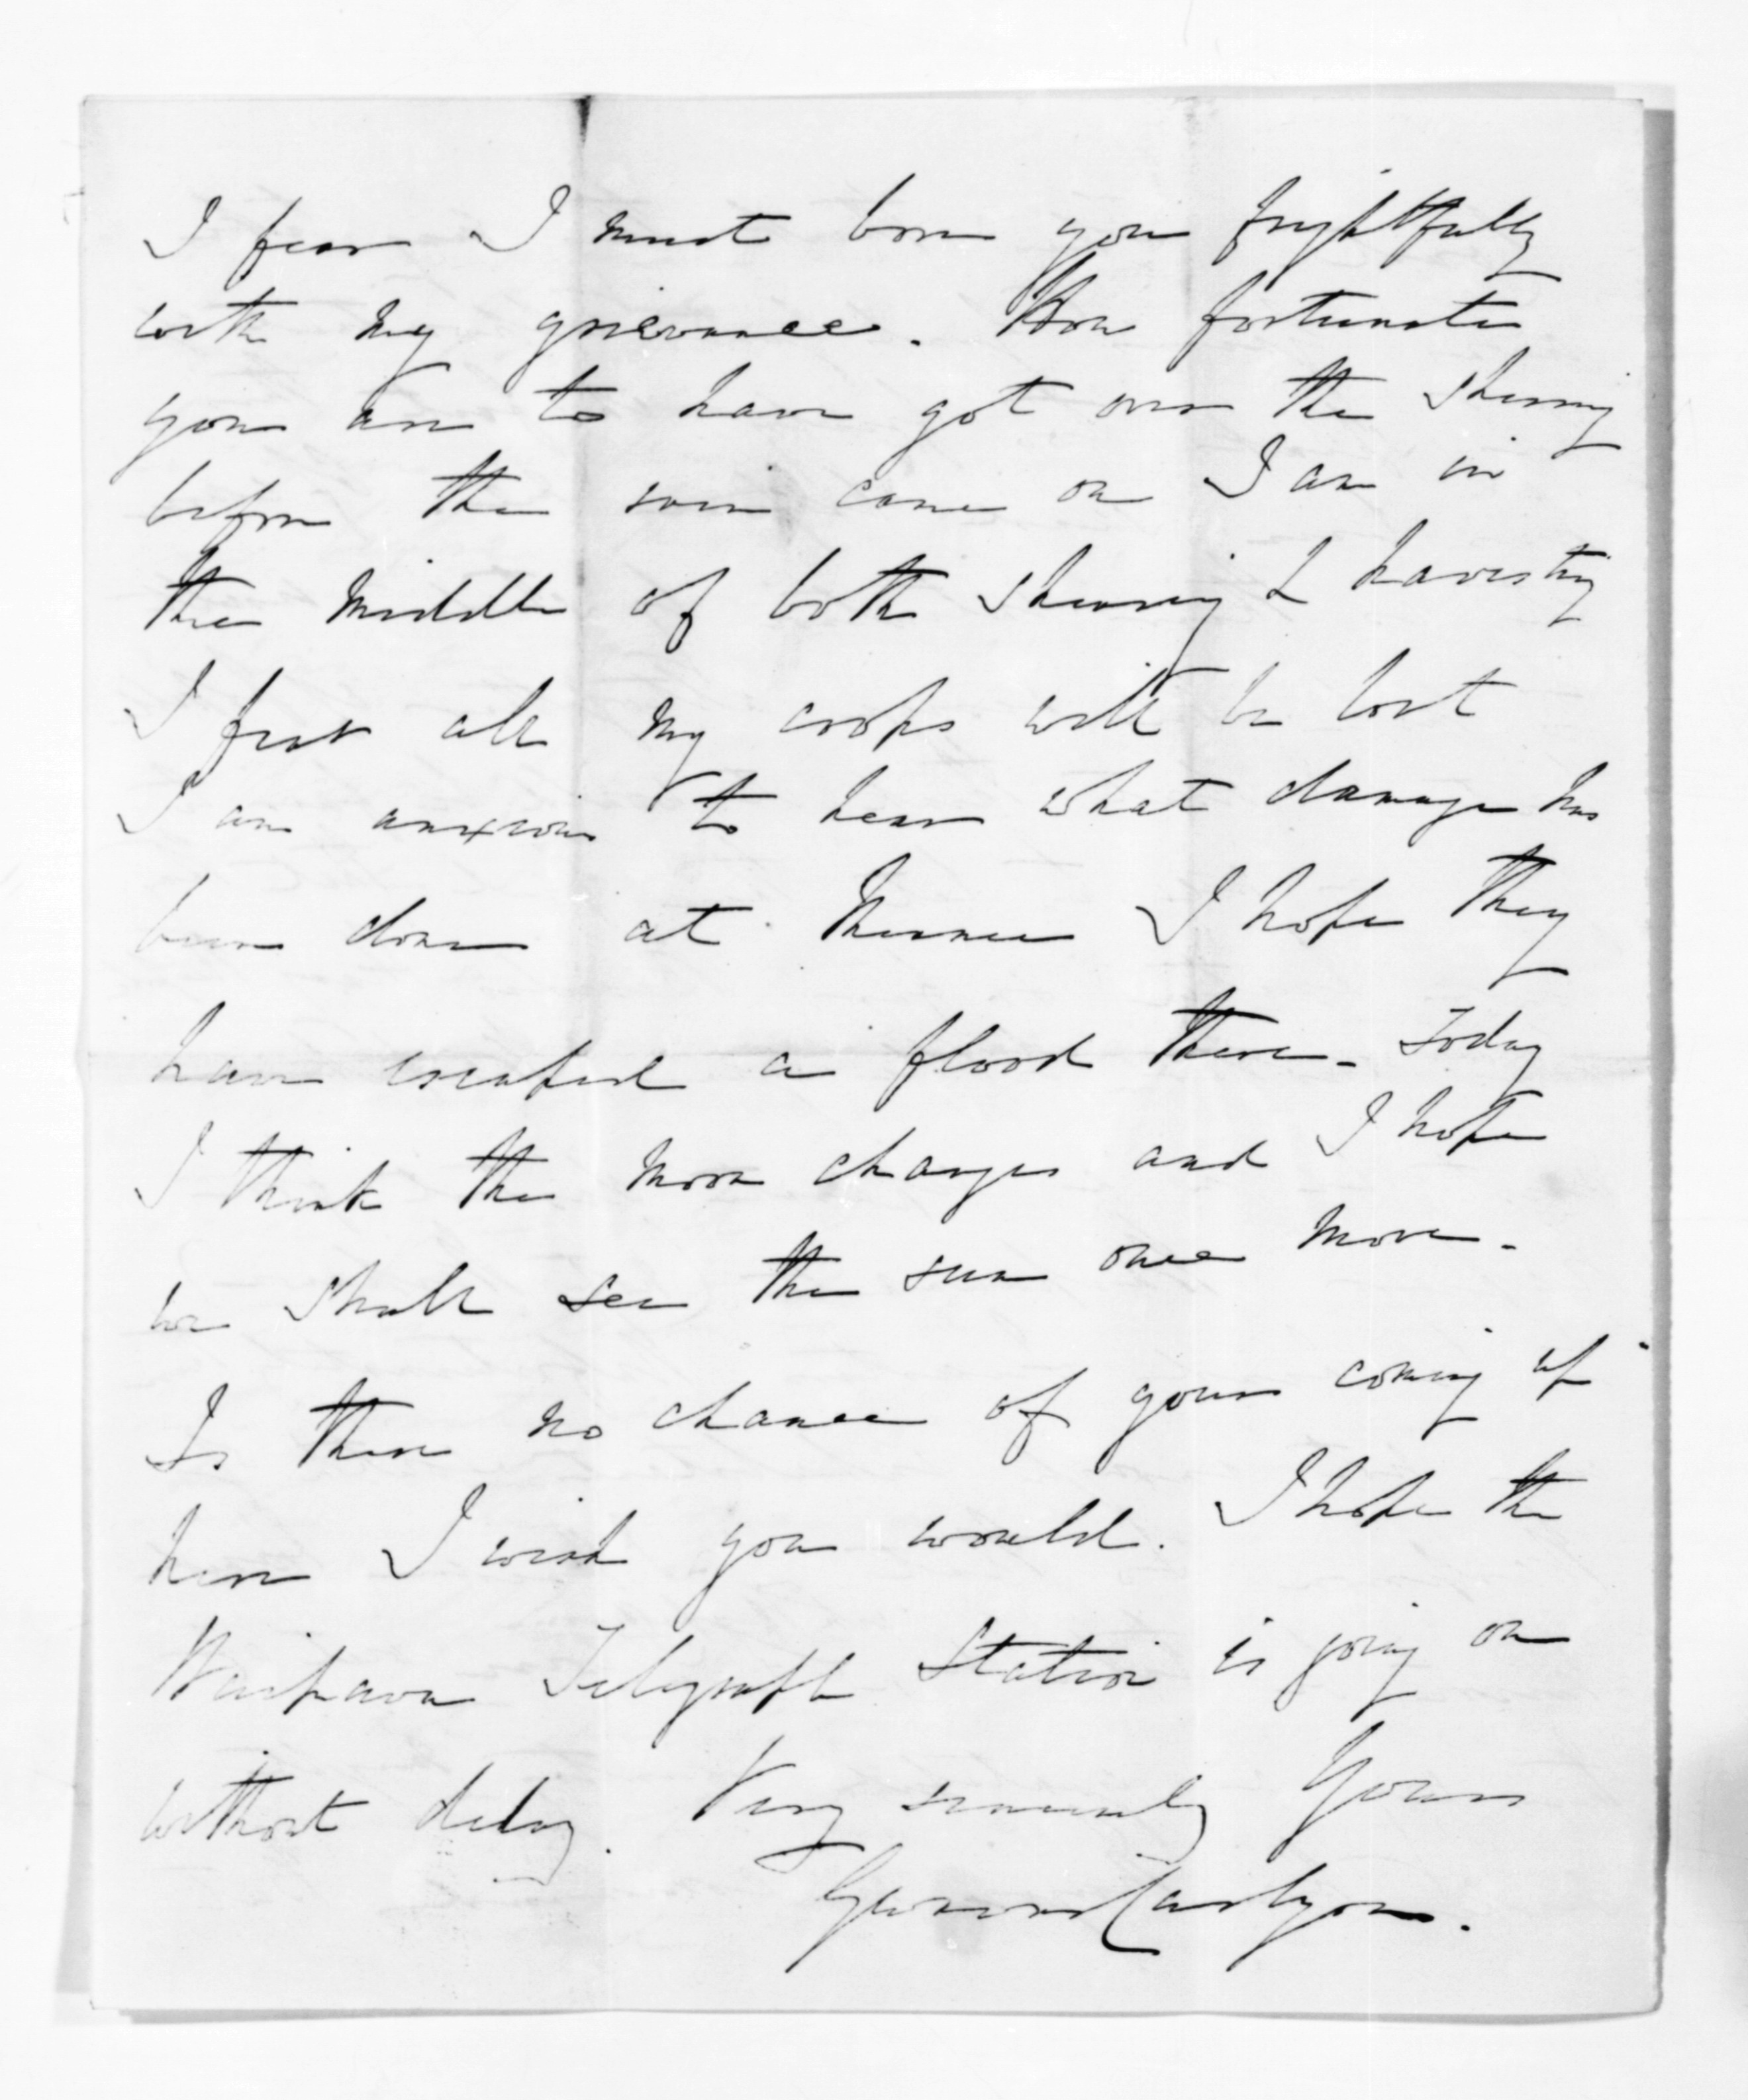 I fear I must bore you frightfully
with my grievance. How fortunate
you are to have got over the shearing
before the rain came on I am in
the middle of both shearing & harvesting
I fear all my crops will be lost
I am anxious to hear what damage has
been done at Meanee I hope they
have escaped a flood there. Today
I think the moon changes and I hope
we shall see the sun once more.
Is there no chance of your coming up
here I wish you would. I hope the
Waipawa Telegraph Station is going on
without delay. Very sincerely Yours
Carlyon.